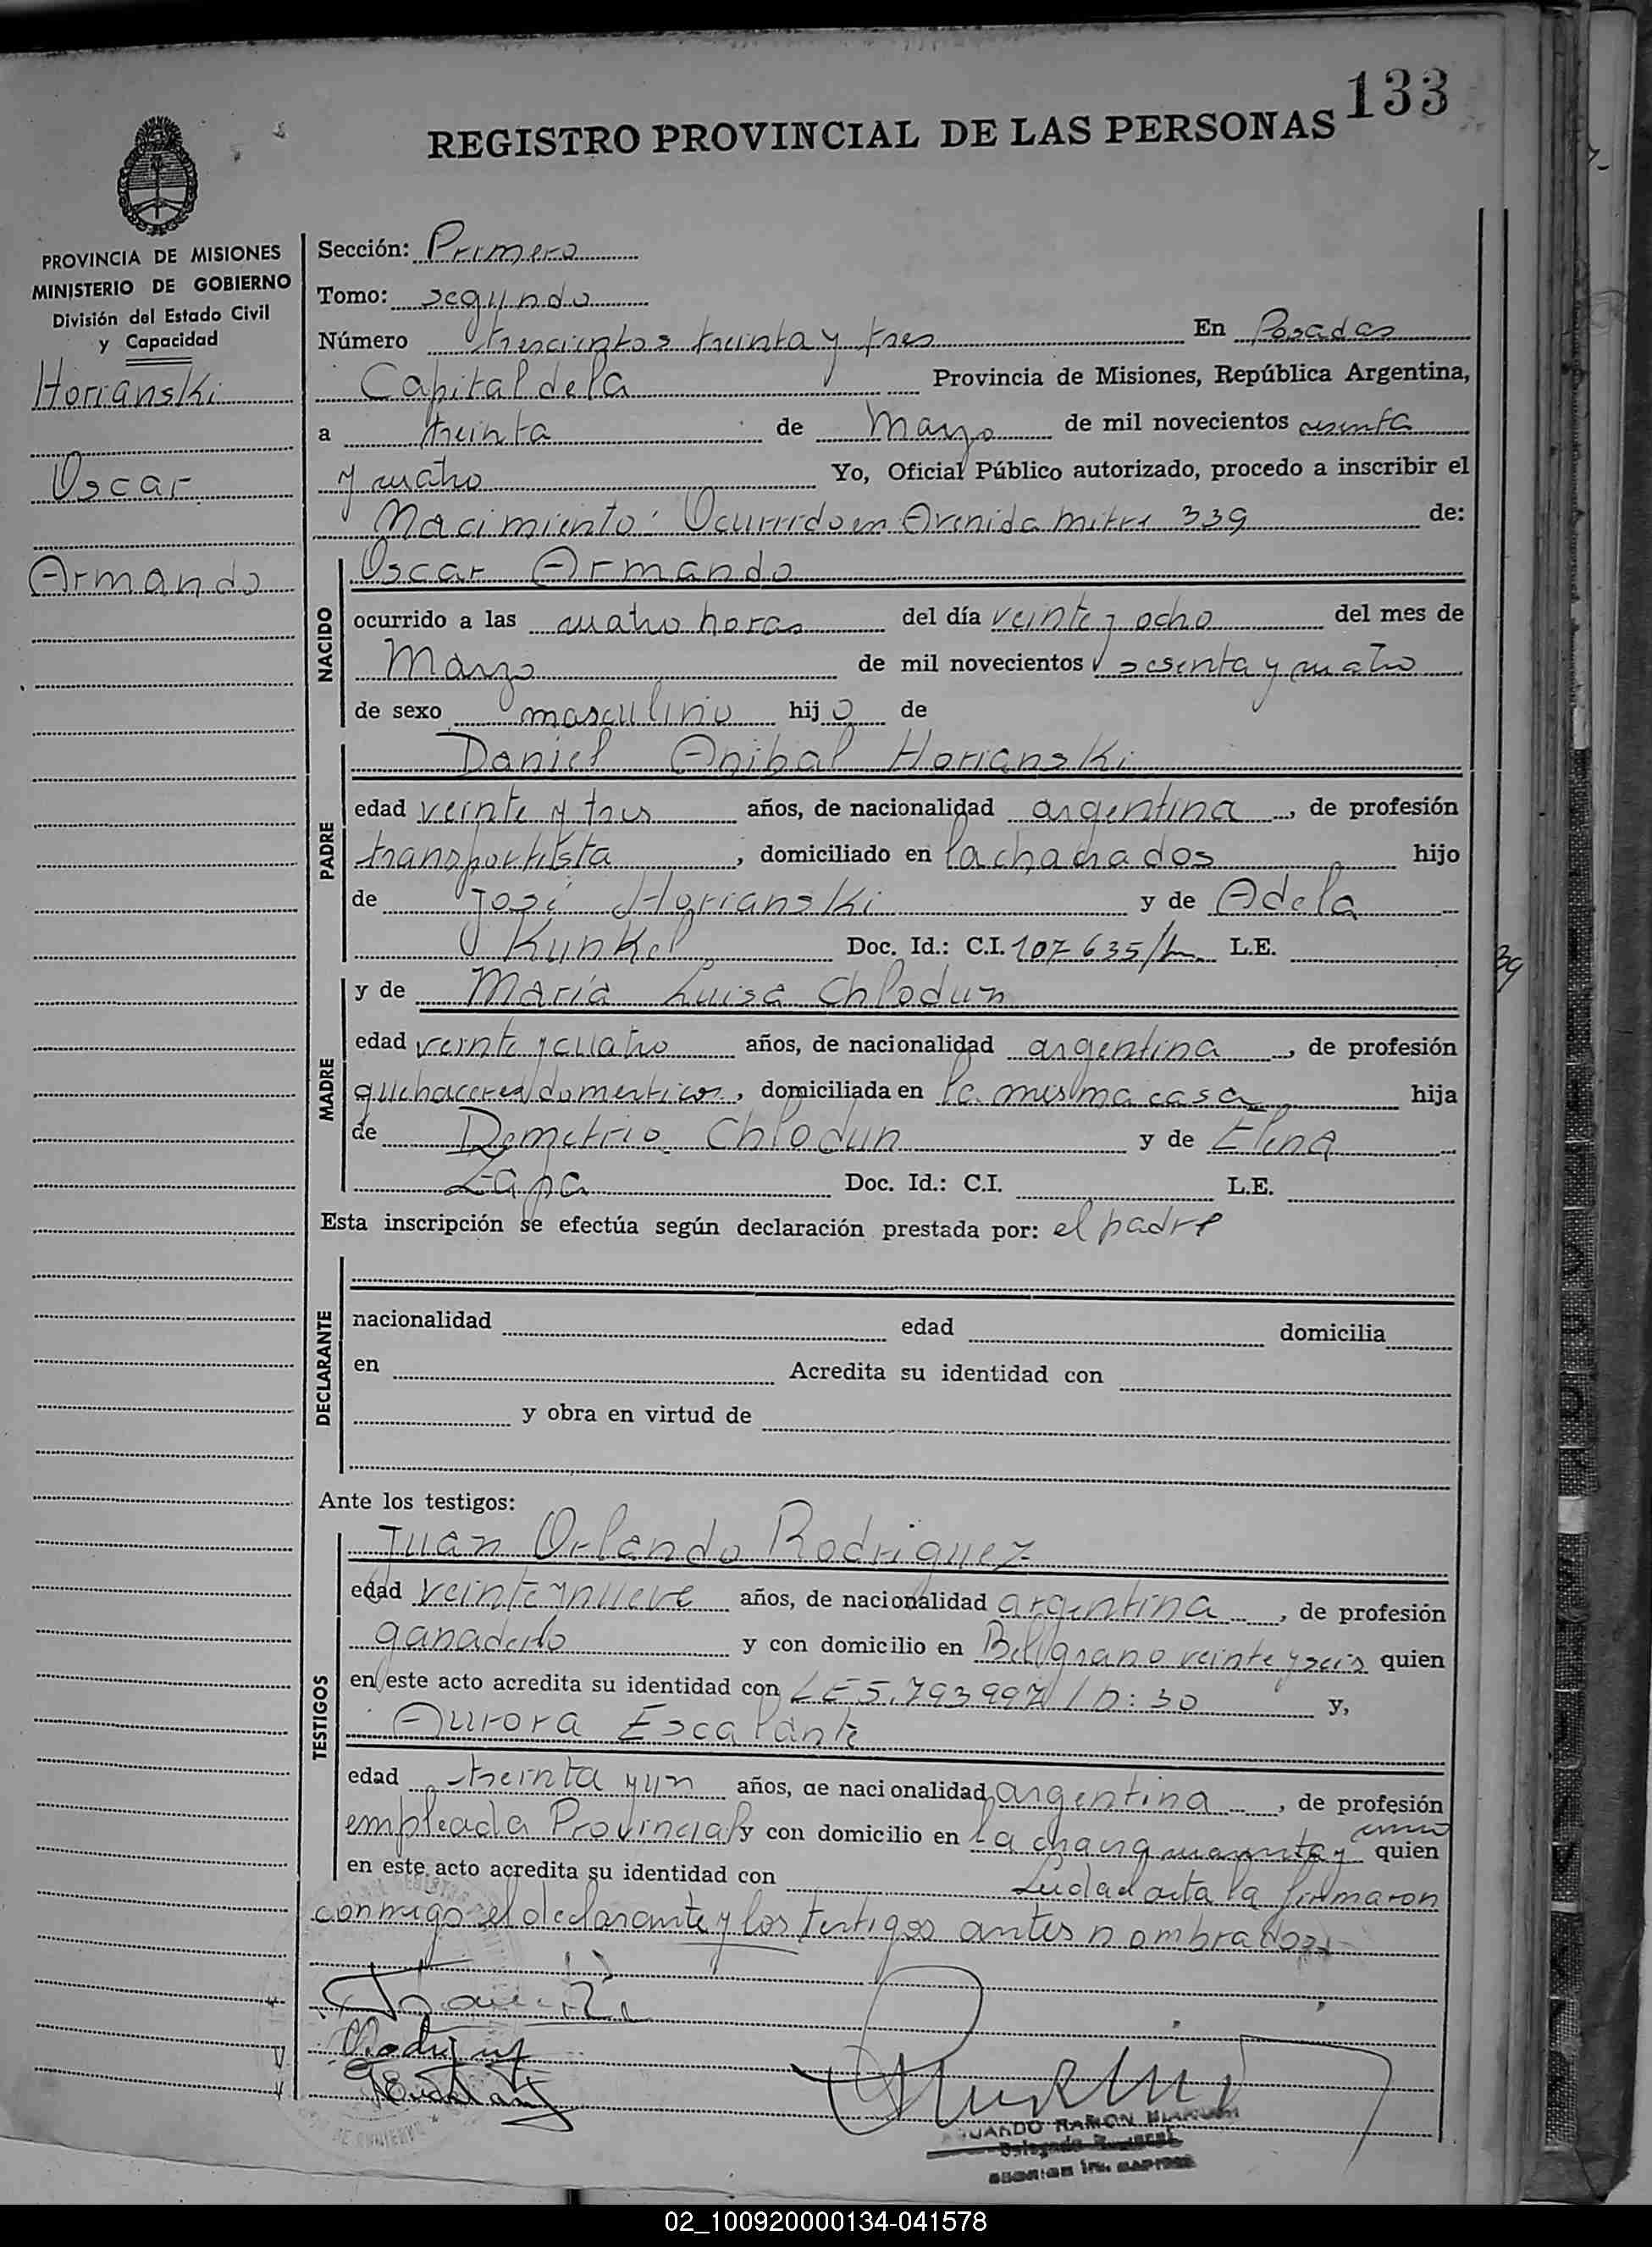 133
REGISTRO PROVINCIAL DE LAS PERSONAS
PROVINCIA DE MISIONES
MINISTERIO DE GOBIERNO
División del Estado Civil
y Capacidad
Horianski
Oscar
Armando
Sección: Primera
Tomo: segundo
Número trescientos treinta y tres En Posadas
Capital de la Provincia de Misiones, República Argentina,
a treinta de Marzo de mil novecientos sesenta
y cuatro Yo, Oficial Público autorizado, procedo a inscribir el
Nacimiento: Ocurrido en Avenida Mitre 339 de:
NACIDO
Oscar Armando
ocurrido a las cuatro horas del día veinte y ocho del mes de
Marzo de mil novecientos sesenta y cuatro
de sexo masculino hijo de
PADRE
Daniel Anibal Horianski
edad veinte y tres años, de nacionalidad argentina, de profesión
transportista, domiciliado en la chacra dos hijo
de José Horianski y de Adela
Kunkel Doc. Id.: C.I. 107635 L.E.
MADRE
y de María Luisa Chlodun
edad veinte y cuatro años, de nacionalidad argentina, de profesión
quehaceres domesticos, domiciliada en la misma casa hija
de Demetrio Chlodun y de Elena
Zapa Doc. Id.: C.I. L.E.
39
Esta inscripción se efectúa según declaración prestada por: el padre
DECLARANTE
nacionalidad edad domicilia
en Acredita su identidad con
y obra en virtud de
Ante los testigos:
TESTIGOS
Juan Orlando Rodriguez
edad veinte y nueve años, de nacionalidad argentina, de profesión
ganadero y con domicilio en Belgrano veinte y seis quien
en este acto acredita su identidad con LE 5.793997 / D: 30 y,
Aurora Escalante
edad treinta y un años, de nacionalidad argentina, de profesión
empleada Provincial y con domicilio en la chacra cuarenta y quien
en este acto acredita su identidad con Leida el acta la firmaron
conmigo el declarante y los testigos antes nombrados
RAMON
02_100920000134-041578